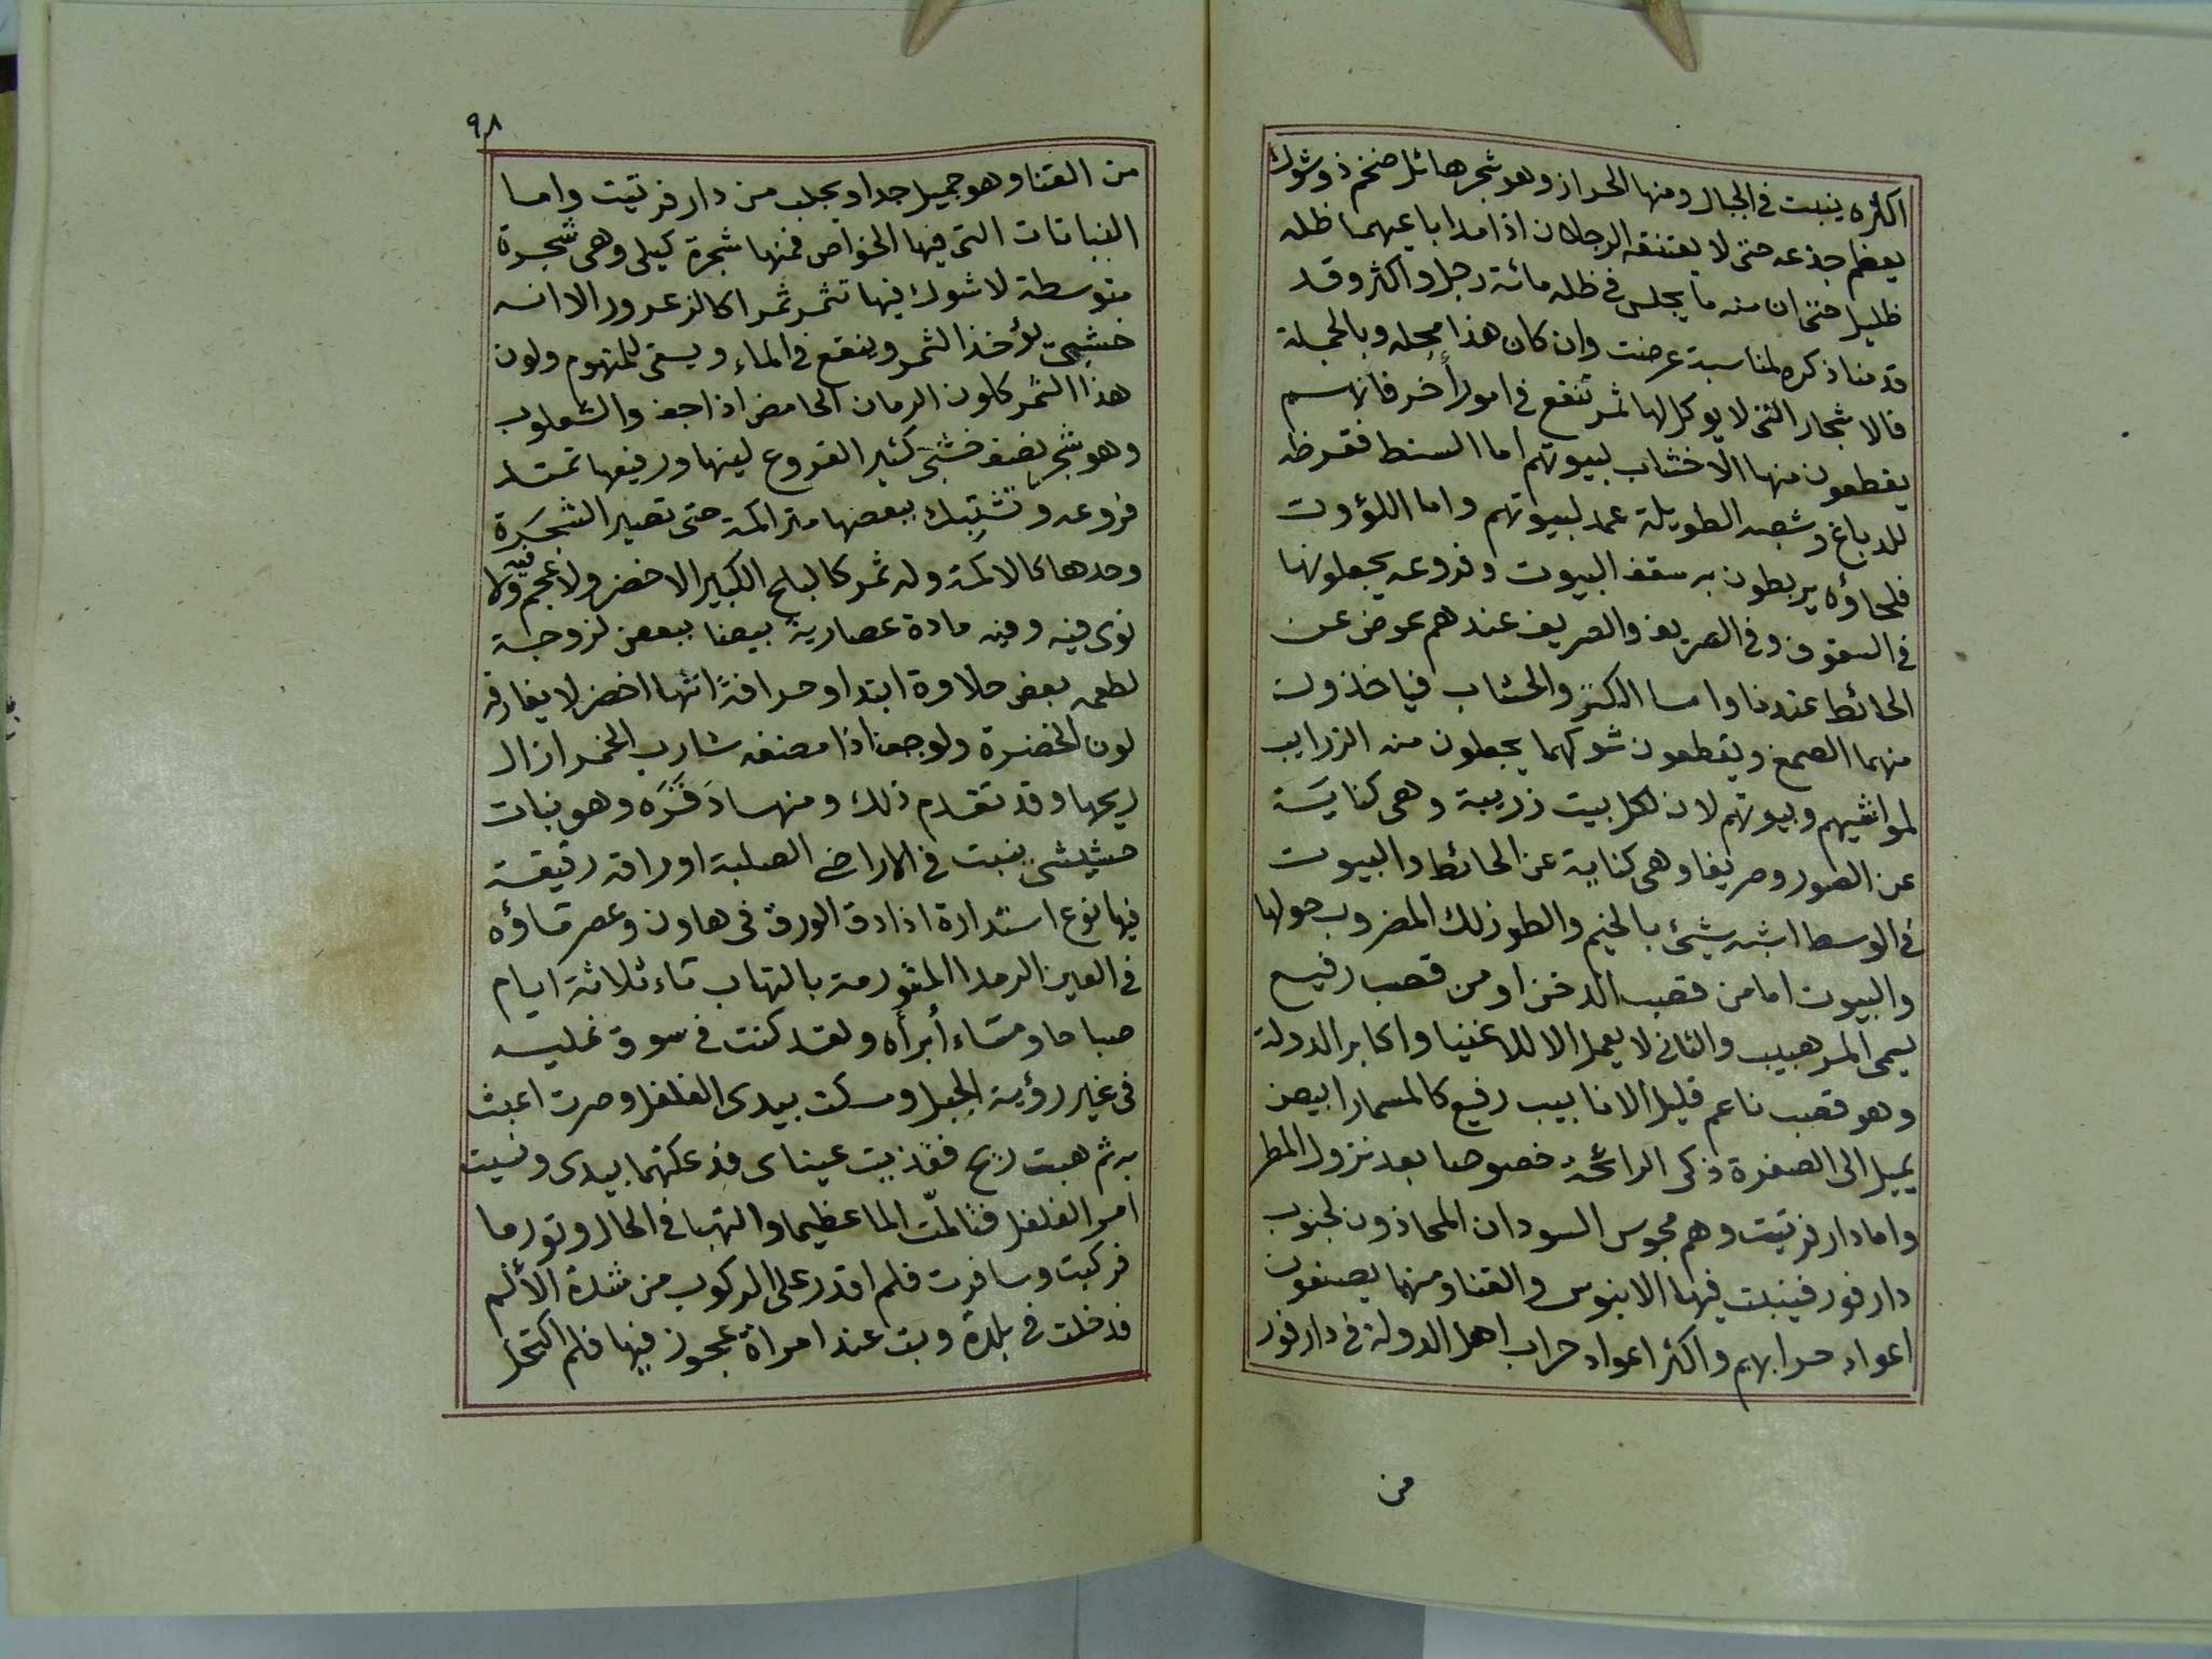 اكثره ينبت في الجبال ومنها الحراز وهو شجر هائل ضخم ذو شوك
يعظم جذعه حتى لا يعتنقه الرجلان اذا مدا باعيهما ظله
ظليل حتى ان منه ما يجلس في ظله مائة رجل واكثر وقد
قدمنا ذكره لمناسبة عرضت وان كان هذا محله وبالجملة
فالاشجار التى لا يوكل لها ثمر تنفع في امور أخر فانهم
يقطعون منها الاخشاب لبيوتهم اما السنط فقرظه
للدباغ وشعبه الطويلة عمد لبيوتهم واما اللؤوت
فلحاؤه يربطون به سقف البيوت وفروعه يجعلونها
في السقوف وفي الصريف والصريف عندهم عوض عن
الحائط عندنا واما الكتر والحشاب فياخذون
منهما الصمغ ويقطعون شوكهما يجعلون منه الزرايب
لمواشيهم وبيوتهم لان لكل بيت زريبة وهى كناية
عن الصور وصريفا وهى كناية عن الحائط والبيوت
في الوسط اشبه شيئ بالخيم والطوزلك المضروب حولها
والبيوت اما من قصب الدخن او من قصب رفيع
يسمى المرهبيب والثانى لا يعمل الا للاغنيا واكابر الدولة
وهو قصب ناعم قليل الانابيب رفيع كالمسمار ابيض
يميل الى الصفرة ذكى الرائحة خصوصا بعد نزول المطر
واما دار فرتيت وهم مجوس السودان المحاذون لجنوب
دارفور فينبت فيها الابنوس والقنا ومنهما يصنعون
اعواد حرابهم واكثر اعواد حراب اهل الدولة في دارفور
من
٩٨
من القنا وهو جميل جدا ويجلب من دار فرتيت واما
النباتات التى فيها الخواص فمنها شجرة كيلى وهى شجرة
متوسطة لا شوك فيها تثمر ثمرا كالزعرور الا انه
خشبىّ يؤخذ الثمر وينقع في الماء ويسقى للمتهوم ولون
هذا الثمر كلون الرمان الحامض اذا جف والشعلوب
وهو شجر نصف خشبىّ كثير الفروع لينها ورفيعها تمتد
فروعه وتشتبك ببعضها متراكمة حتى تصير الشجرة
وحدها كالاكمة وله ثمر كالبلح الكبير الاخضر ولا عجم فيه ولا
نوى فيه وفيه مادة عصارية بيضا ببعض لزوجة
لطعمه بعض حلاوة ابتدا وحرافة انتها اخضر لا يفارقه
لون الخضرة ولو جف اذا مضغه شارب الخمر ازال
ريحها وقد تقدم ذلك ومنها دَقَرَه وهو نبات
حشيشى ينبت في الاراضى الصلبة اوراقه رقيقة
فيها نوع استدارة اذا دق الورق في هاون وعصر ماؤه
في العين الرمدا المتورمة بالتهاب ماء ثلاثة ايام
صباحا ومساء أبرأه ولقد كنت في سوق نمليه
في غير رؤية الجبل ومسكت بيدى الفلفل وصرت اعبث
به ثم هبت ريح فقذيت عيناى فدعكتهما بيدى ونسيت
امر الفلفل فتالمّت الما عظيما والتهبا في الحال وتورما
فركبت وسافرت فلم اقدر على الركوب من شدة الألم
فدخلت في بلدة وبت عند امراة عجوز فيها فلم اكتحل